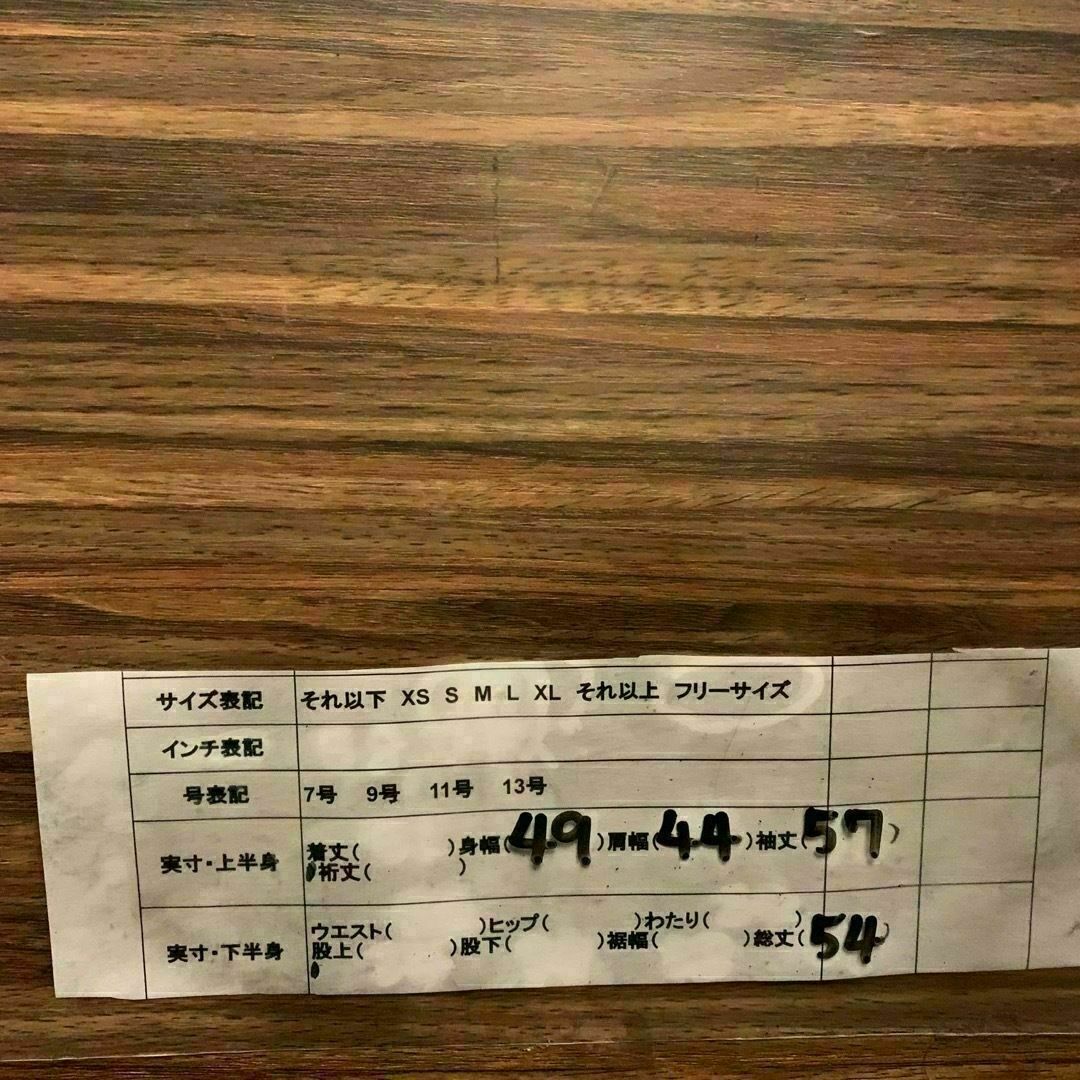 サイズ表記 それ以下 XS S M L XL それ以上 フリーサイズ
インチ表記
号表記 7号 9号 11号 13号
実寸・上半身 着丈( )身幅(49)肩幅(44)袖丈(57)
裄丈( )
実寸・下半身 ウエスト( )ヒップ( )わたり( )
股上( )股下( )裾幅( )総丈(54)